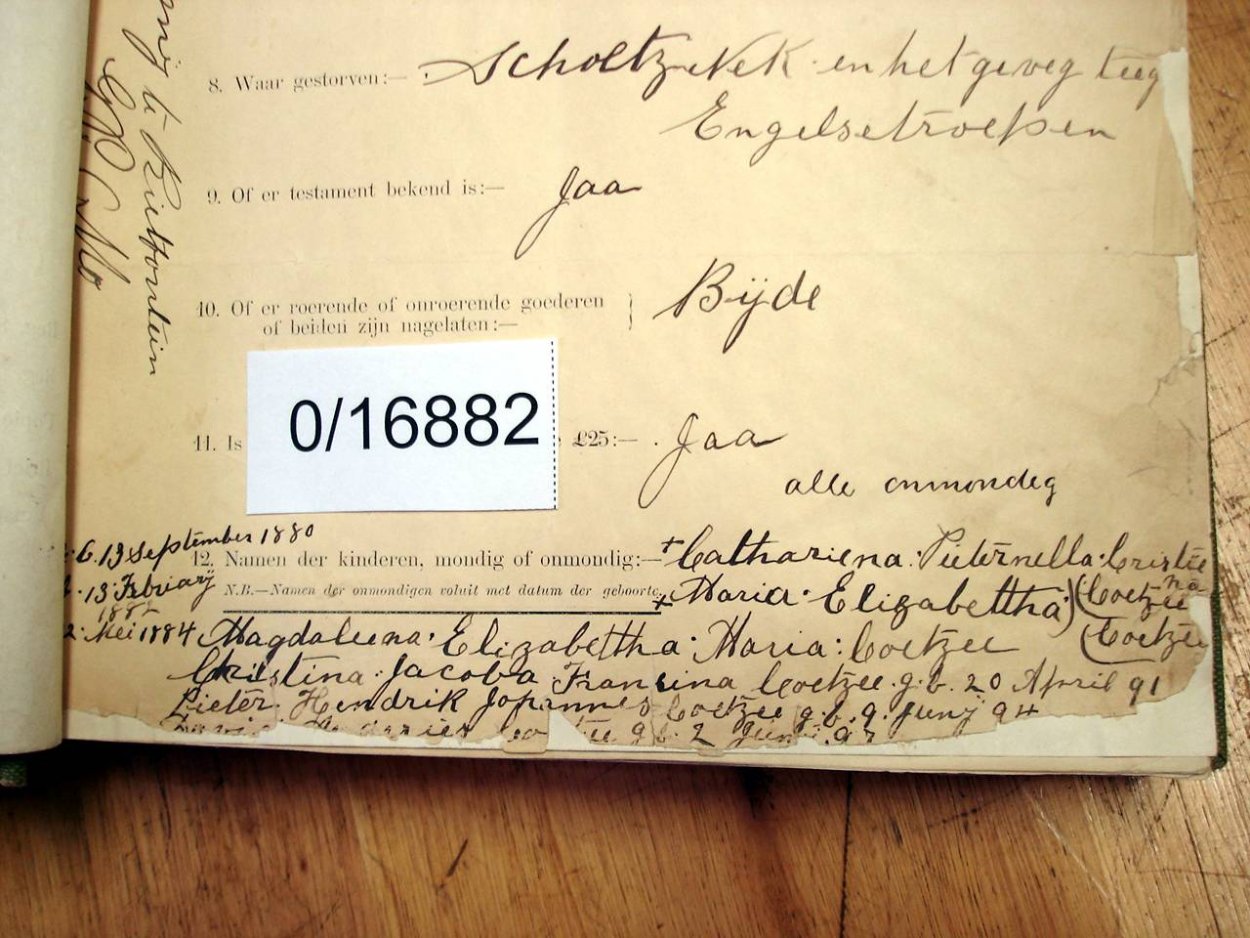 8. Waar gestorven:— Scholtz Nek en het geveg teeg
Engelsetroepen
9. Of er testament bekend is:— Jaa
10. Of er roerende of onroerende goederen
of beiden zijn nagelaten:— Bijde
0/16882
11. Is £25:— Jaa
alle onmondeg
13 September 1880
12. Namen der kinderen, mondig of onmondig:— + Cathariena Pieternella Cristie
na
13 Febuarij
1882
N.B.—Namen der onmondigen voluit met datum der geboorte. + Maria Elizabettha (Coetzee
(Coetzee
2 Mei 1884 Magdaleena Elizabettha Maria Coetzee
Cristina Jacoba Fransina Coetzee g.b. 20 April 91
Pieter Hendrik Johannes Coetzee g.b. 9 Junij 94
g.b. 2
te Rietfontein